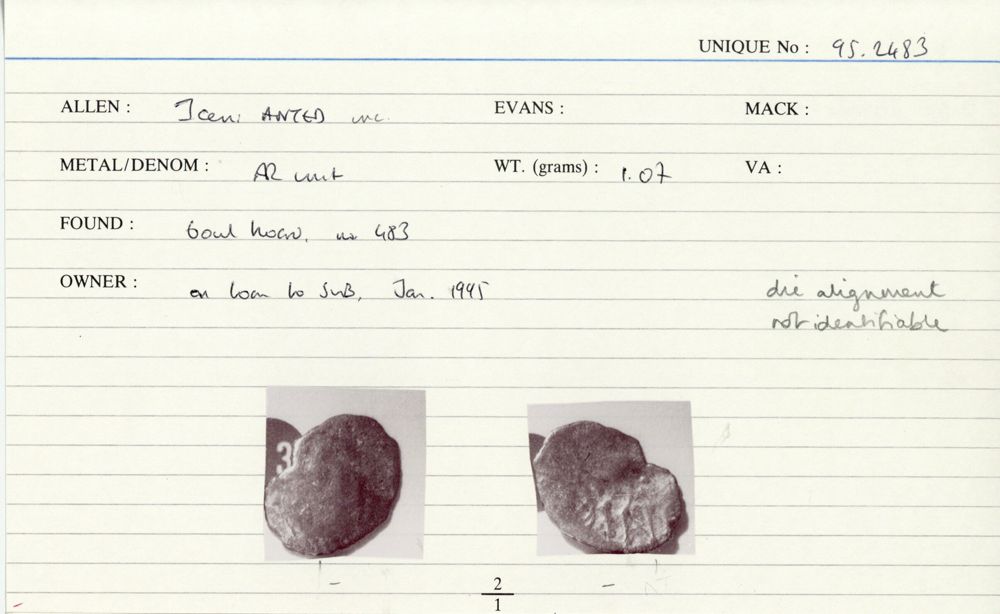 UNIQUE No : 95.2483
ALLEN : Iceni ANTED inc. EVANS : MACK :
METAL/DENOM : AR unit WT. (grams) : 1.07 VA :
FOUND : bowl hoard, no 483
OWNER : on loan to SWB, Jan. 1995
die alignment
not identifiable
3
2
1